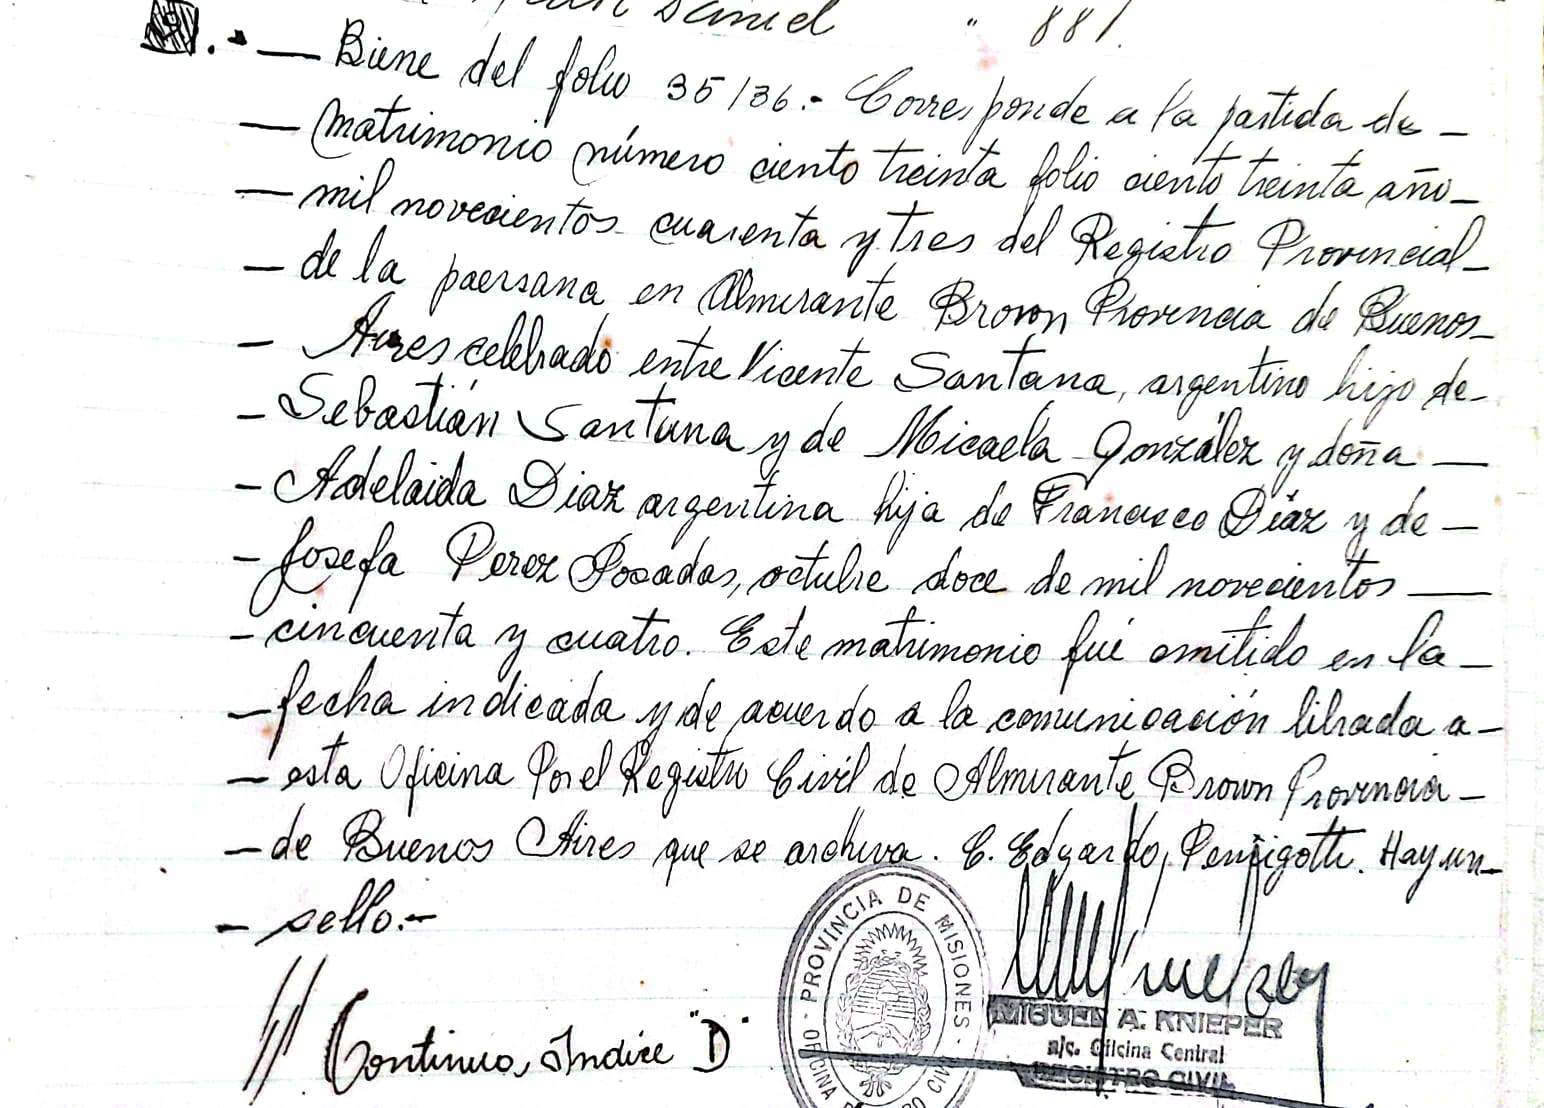 Daniel " 881.
. - — Biene del folio 35/36.- Corresponde a la partida de —
— matrimonio número ciento treinta folio ciento treinta año —
— mil novecientos cuarenta y tres del Registro Provincial —
— de la paersana en Almirante Brown Provincia de Buenos —
— Aires celebrado entre Vicente Santana, argentino hijo de —
— Sebastián Santana y de Micaela González y doña —
— Adelaida Diaz argentina hija de Francisco Díaz y de —
— Josefa Perez Posadas, octubre doce de mil novecientos —
— cincuenta y cuatro. Este matrimonio fué omitido en la —
— fecha indicada y de acuerdo a la comunicación librada a —
— esta Oficina Por el Registro Civil de Almirante Brown Provincia —
— de Buenos Aires que se archiva. C. Edgardo Hay un —
— sello.-
// Continua, Indice "D"
PROVINCIA DE MISIONES
MIGUEL A. KNIEPER
a/c. Oficina Central
REGISTRO CIVIL